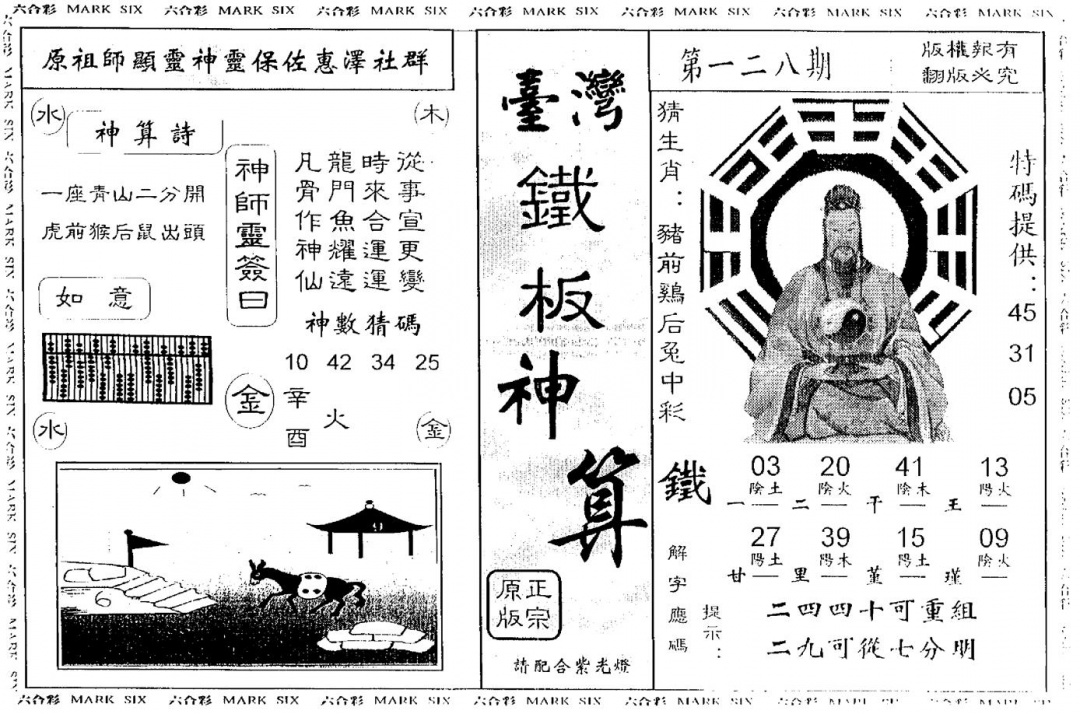 六合彩 MARK SIX 六合彩 MARK SIX 六合彩 MARK SIX 六合彩 MARK SIX 六合彩 MARK SIX 六合彩 MARK SIX 六合彩 MARK SIX
原祖師顯靈神靈保佐惠澤社群
水
木
神算詩
一座青山二分開
虎前猴后鼠出頭
如意
神師靈簽曰
從事宣更變
時來合運運
龍門魚耀遠
凡骨作神仙
神數猜碼
10 42 34 25
金
辛酉
火
水
金
臺灣
鐵
板
神
算
正宗
原版
請配合紫光燈
第一二八期
版權報有
翻版必究
猜生肖：豬前鷄后兔中彩
特碼提供：
45
31
05
鐵
03 20 41 13
陰土 陰火 陰木 陽火
一 二 干 王
27 39 15 09
陽土 陽木 陽土 陰火
甘 里 堇 瑾
解字應碼
提示：
二四四十可重組
二九可從七分明
六合彩 MARK SIX 六合彩 MARK SIX 六合彩 MARK SIX 六合彩 MARK SIX 六合彩 MARK SIX